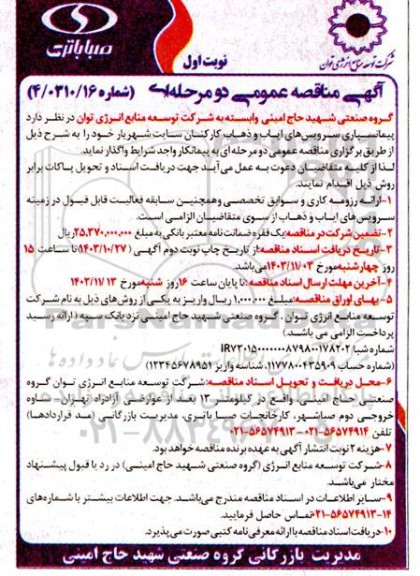 صباباتری
نوبت اول
شرکت توسعه منابع انرژی توان
آگهی مناقصه عمومی دو مرحله‌ای (شماره ۴/۰۳۱۰/۱۶)
گروه صنعتی شهید حاج امینی وابسته به شرکت توسعه منابع انرژی توان در نظر دارد
پیمانسپاری سرویس‌های ایاب و ذهاب کارکنان سایت شهریار خود را به شرح ذیل
از طریق برگزاری مناقصه عمومی دو مرحله‌ای به پیمانکار واجد شرایط واگذار نماید.
لذا از کلیه متقاضیان دعوت به عمل می‌آید جهت دریافت اسناد و تحویل پاکات برابر
روش ذیل اقدام نمایند.
۱-ارائه رزومه کاری و سوابق تخصصی و همچنین سابقه فعالیت قابل قبول در زمینه
سرویس های ایاب و ذهاب از سوی متقاضیان الزامی است.
۲-تضمین شرکت در مناقصه: یک فقره ضمانت نامه معتبر بانکی به مبلغ ۲۵,۳۷۰,۰۰۰,۰۰۰ ریال
۳-تاریخ دریافت اسناد مناقصه: از تاریخ چاپ نوبت دوم آگهی (۱۴۰۳/۱۰/۲۷) تا ساعت ۱۵
روز چهارشنبه مورخ ۱۴۰۳/۱۱/۰۳ می‌باشد.
۴-آخرین مهلت ارسال اسناد مناقصه: تا پایان ساعت ۱۶ روز شنبه مورخ ۱۴۰۳/۱۱/۱۳
۵-بهای اوراق مناقصه: مبلغ ۱,۰۰۰,۰۰۰ ریال واریز به یکی از روش‌های ذیل به نام شرکت
توسعه منابع انرژی توان . گروه صنعتی شهید حاج امینی نزد بانک سپه (ارائه رسید
پرداخت الزامی می باشد.)
(شماره حساب ۱۱۷۷۸۰۰۴۳۵۹۰۹. شناسه واریز ۱۲۳۴۵۶۷۸۹۵۱)
۶-محل دریافت و تحویل اسناد مناقصه: شرکت توسعه منابع انرژی توان گروه
صنعتی حاج امینی، واقع در کیلومتر ۱۳ بعد از عوارضی آزادراه تهران- ساوه
خروجی دوم صباشهر، کارخانجات صبا باتری. مدیریت بازرگانی (مد قراردادها)
تلفن ۵۶۵۷۴۹۱۴-۰۲۱ ۵۶۵۷۴۹۱۳-۰۲۱
۷-هزینه ۲ نوبت انتشار آگهی به عهده برنده مناقصه خواهد بود.
۸-شرکت توسعه منابع انرژی (گروه صنعتی شهید حاج امینی) در رد یا قبول پیشنهاد
مختار می‌باشد.
۹-سایر اطلاعات در اسناد مناقصه مندرج می‌باشد. جهت اطلاعات بیشتر با شماره‌های
۱۴-۵۶۵۷۴۹۱۳-۰۲۱ تماس حاصل فرمایید.
۱۰-دریافت اسناد مناقصه با ارائه معرفی نامه کتبی صورت می‌پذیرد.
مدیریت بازرگانی گروه صنعتی شهید حاج امینی